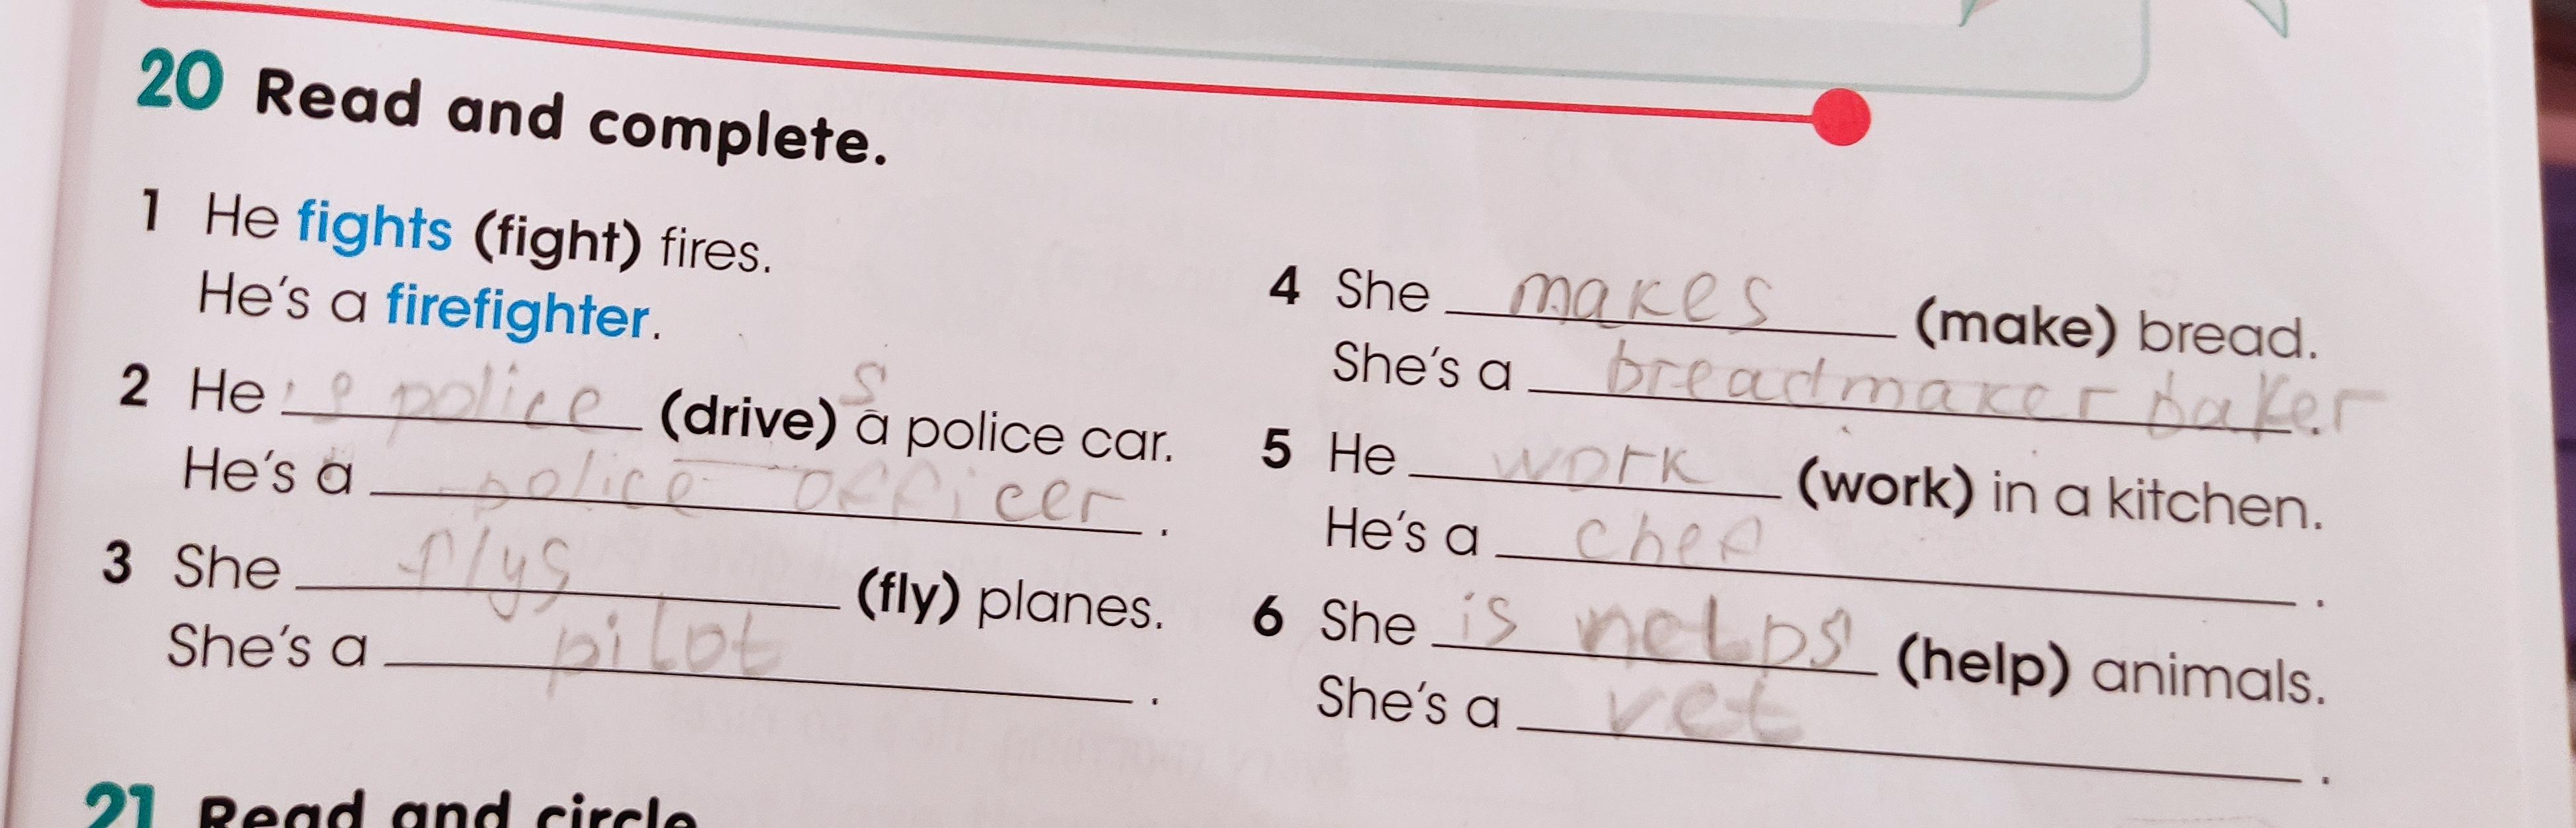 20 Read and complete.
1 He fights (fight) fires.
He's a firefighter.
2 He police (drive) s a police car.
He's a police officer.
3 She flys (fly) planes.
She's a pilot.
4 She makes (make) bread.
She's a breadmaker baker.
5 He work (work) in a kitchen.
He's a chef.
6 She is helps (help) animals.
She's a vet.
21 Read and circle